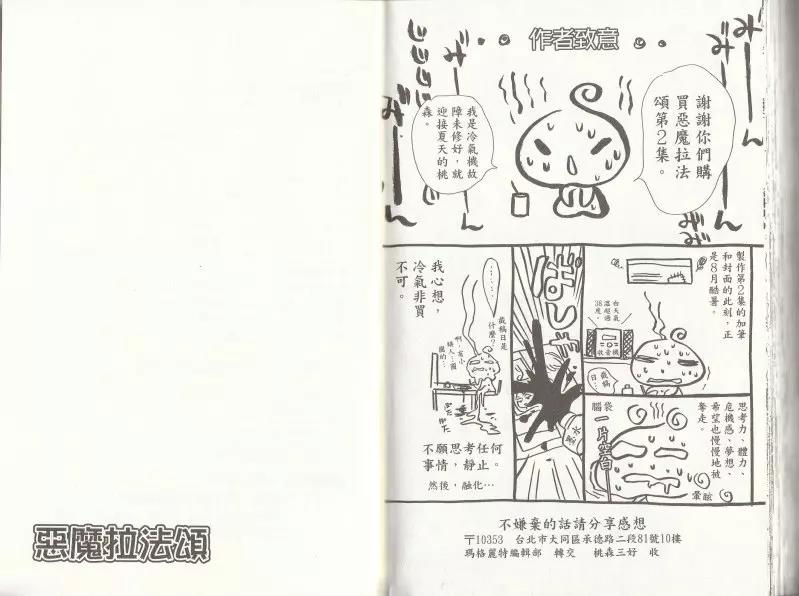 作者致意
謝謝你們購
買惡魔拉法
頌第2集。
我是冷氣機故
障未修好,就
迎接夏天的桃
森。
みーーん
みーーん
製作第2集的加筆
和封面的此刻,正
是8月酷暑。
白天氣
溫超過
38度。
收音機
截稿
日…
思考力、體力、
危機感、夢想、
希望也慢慢地被
奪走。
腦袋
一片空白
暈眩
ばしゃ
我心想,
冷氣非買
不可。
截稿日是
什麼?
啊,有小
矮人…圍
圈的…
不願思考任何
事情,靜止。
然後,融化…
不嫌棄的話請分享感想
〒10353 台北市大同區承德路二段81號10樓
瑪格麗特編輯部 轉交 桃森三好 收
惡魔拉法頌